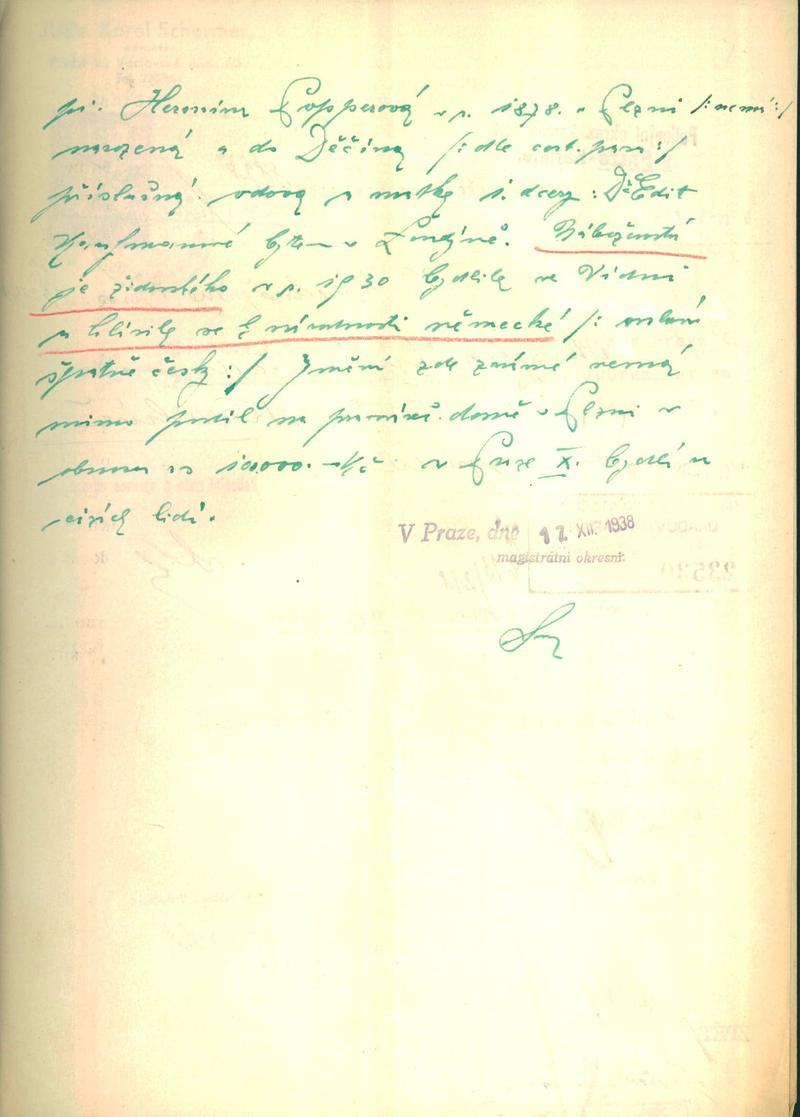 pí. Hermína Popperová v r. 1878. v Plzni /: nemá :/
narozená a do Děčína /: dle cest. pasu :/
příslušná vdova a matka 1. dcery : Edit
bytem v Londýně. Náboženství
je židovského v r. 1930 bydlila ve Vídni
a hlásila se k národnosti německé /: mluví
špatně česky :/ Jmění zde známé nemá
mimo podíl na domě v Plzni v
obnosu 10000.- Kč v Praze X. bydlí u
cizích lidí.
V Praze, dne 17. XII. 1938
magistrátní okresní:
23530